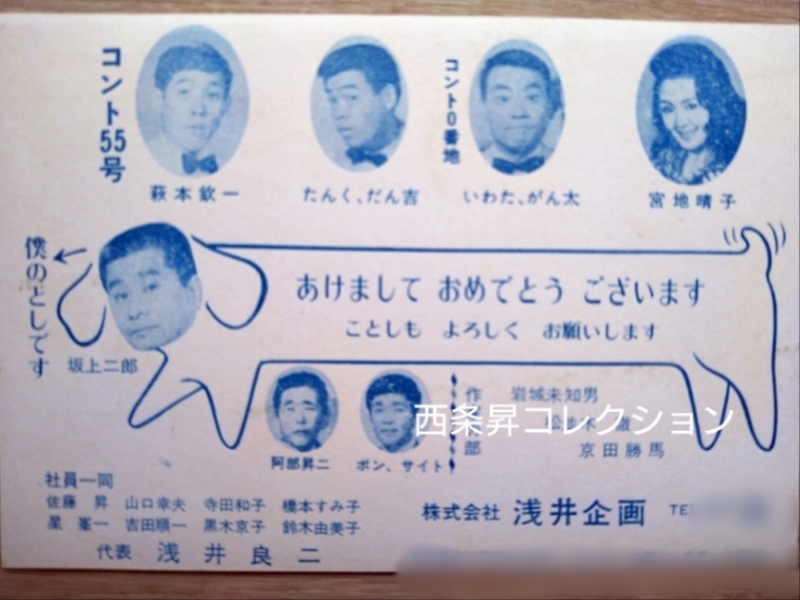 コント55号
萩本欽一
たんく、だん吉
コント0番地
いわた、がん太
宮地晴子
僕のとしです
坂上二郎
あけまして おめでとう ございます
ことしも よろしく お願いします
阿部昇二
ポン、サイト
作 部
岩城未知男
京田勝馬
西条昇コレクション
社員一同
佐藤 昇 山口幸夫 寺田和子 橋本すみ子
星 峯一 吉田順一 黒木京子 鈴木由美子
代表 浅井良二
株式会社 浅井企画 TEL